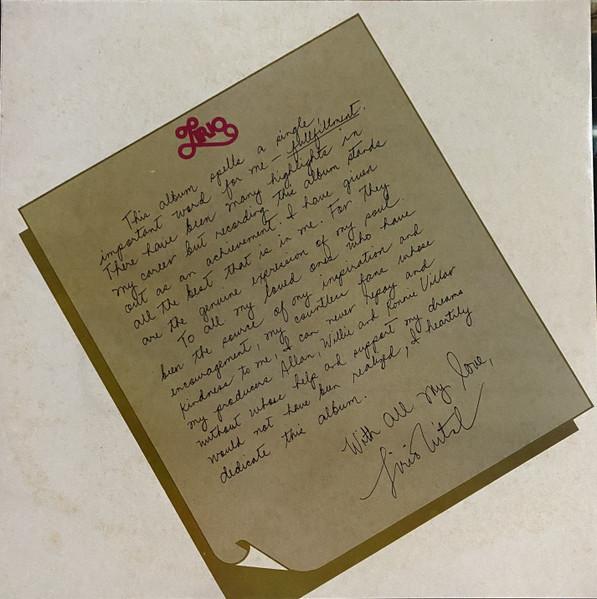 Lirio
This album spells a single,
important word for me — fulfillment.
There have been many highlights in
my career but recording this album stands
out as an achievement. I have given
all the best that is in me. For they
are the genuine expression of my soul.
To all my loved ones who have
been the source of my inspiration and
encouragement, my countless fans whose
kindness to me, I can never repay and
my producers Allan, Willie and Ronnie Villar
without whose help and support my dreams
would not have been realized, I heartily
dedicate this album.
With all my love,
Lirio Vital